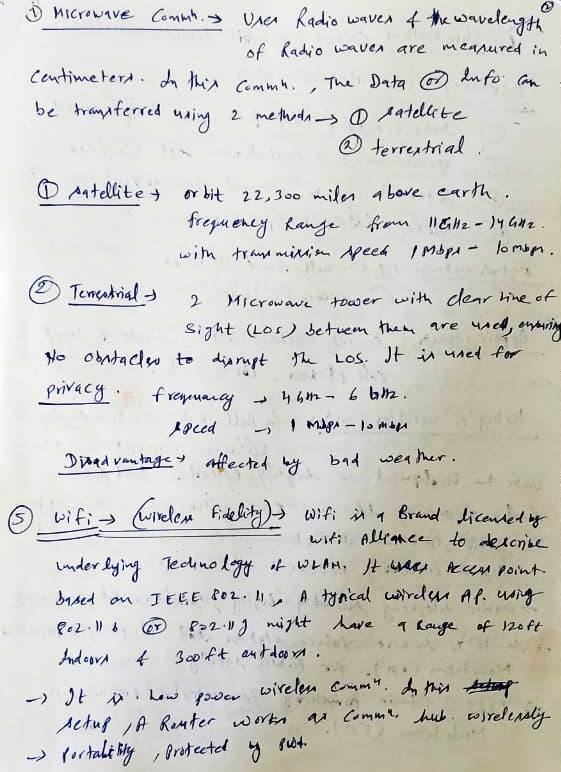 ① Microwave Commn. → Uses Radio waves & the wavelength
of Radio waves are measured in
Centimeters. In this Commn., The Data or Info can
be transferred using 2 methods → ① satellite
② terrestrial.
① satellite → orbit 22,300 miles above earth.
frequency Range from 11GHz - 14GHz.
with transmission speed 1Mbps - 10mbps.
② Terrestrial → 2 Microwave tower with clear line of
Sight (LOS) between them are used, ensuring
No obstacles to disrupt the LOS. It is used for
privacy. frequency → 4GHz - 6GHz.
speed → 1 Mbps - 10 mbps
Disadvantage → affected by bad weather.
⑤ wifi → (wireless fidelity) → wifi is a Brand licensed by
wifi Alliance to describe
underlying Technology of WLAN. It Access point
based on IEEE 802.11, A typical wireless AP. using
802.11b or 802.11g might have a Range of 120ft
Indoors & 300ft outdoors.
→ It is low power wireless Commn. In this
setup, A Router works as Commn. hub. wirelessly
→ Portability, Protected by pwd.